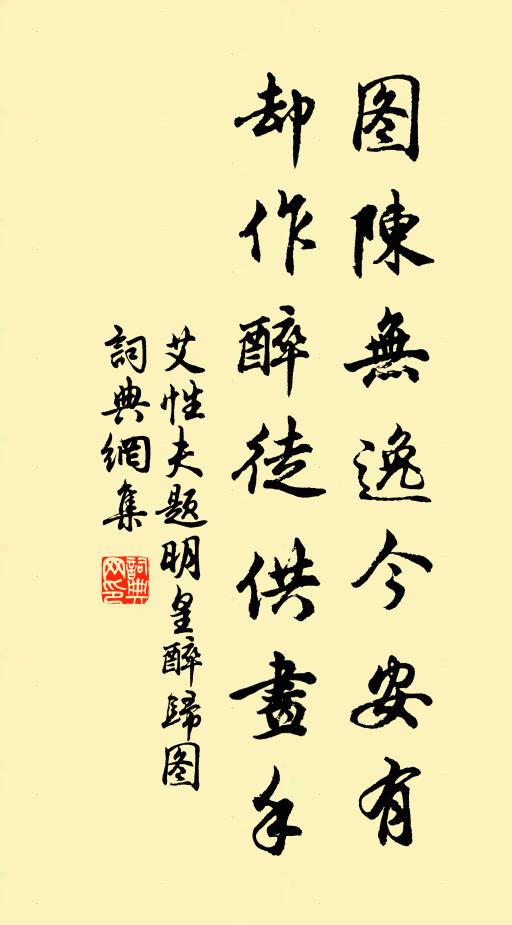 图陳無逸今安有
却作醉徒供畫手
艾性夫题明皇醉歸图
詞典網集
詞典网印